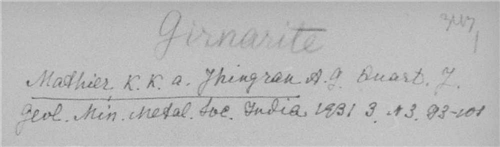 Girnarite
Mathier, K. K. a. Jhingran A. G. Quart. J.
Geol. Min. Metal. Soc. India 1931 3, N3, 93-101